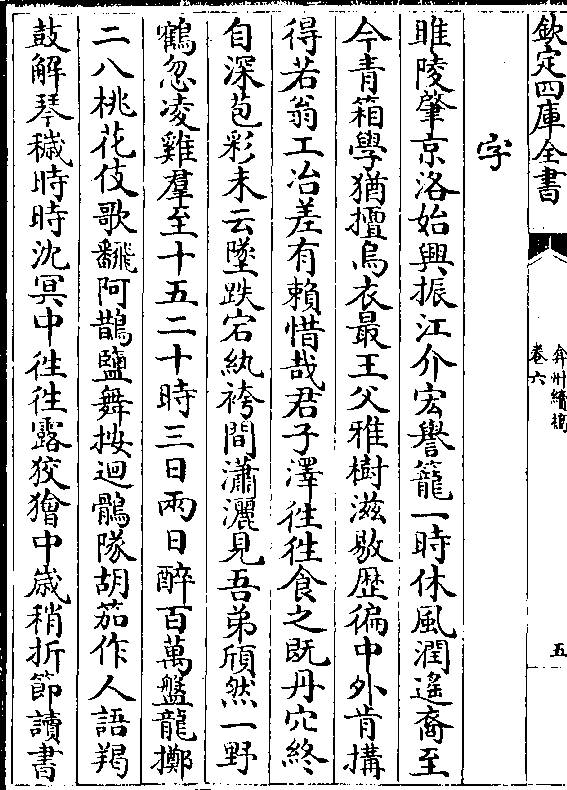 欽定四庫全書
弇州續稿
卷六
五
字
睢陵肇京洛始興振江介宏譽籠一時休風潤遙裔至
今青箱學猶擅烏衣最王父雅樹滋敭歴徧中外肯搆
得若翁工冶差有賴惜哉君子澤徃徃食之既丹穴終
自深苞彩未云墜跌宕紈袴間瀟灑見吾弟頎然一野
鶴忽凌雞羣至十五二十時三日兩日醉百萬盤龍擲
二八桃花伎歌飜阿鵲鹽舞按迴鶻隊胡笳作人語羯
鼓解琴穢時時沈冥中徃徃露狡獪中歲稍折節讀書